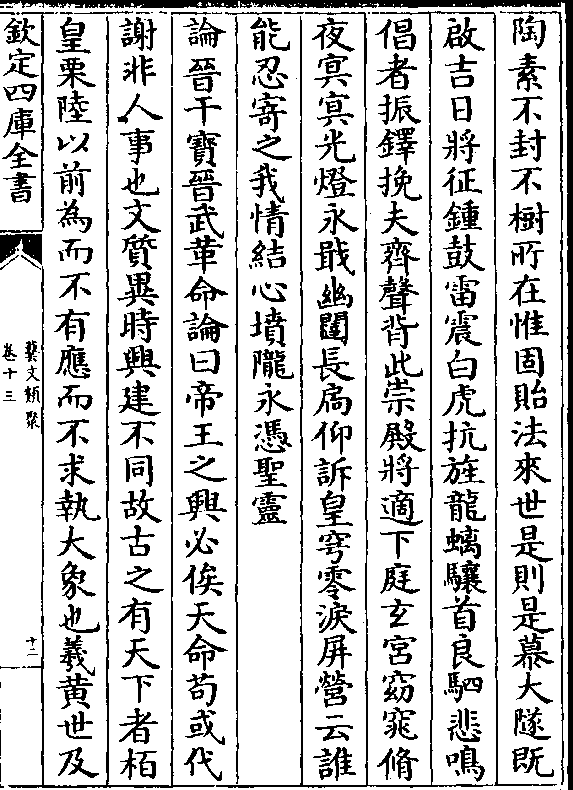 陶素不封不樹所在惟固貽法來世是則是慕大隧既
啟吉日將征鍾鼓雷震白虎抗旌龍螭驤首良駟悲鳴
倡者振鐸挽夫齊聲背此崇殿將適下庭玄宮窈窕脩
夜冥冥光燈永戢幽闥長扃仰訴皇穹零淚屏營云誰
能忍寄之我情結心墳隴永憑聖靈
論晉干寶晉武革命論曰帝王之興必俟天命苟或代
謝非人事也文質異時興建不同故古之有天下者栢
皇栗陸以前為而不有應而不求執大象也羲黃世及
欽定四庫全書
藝文類聚
卷十三
十二